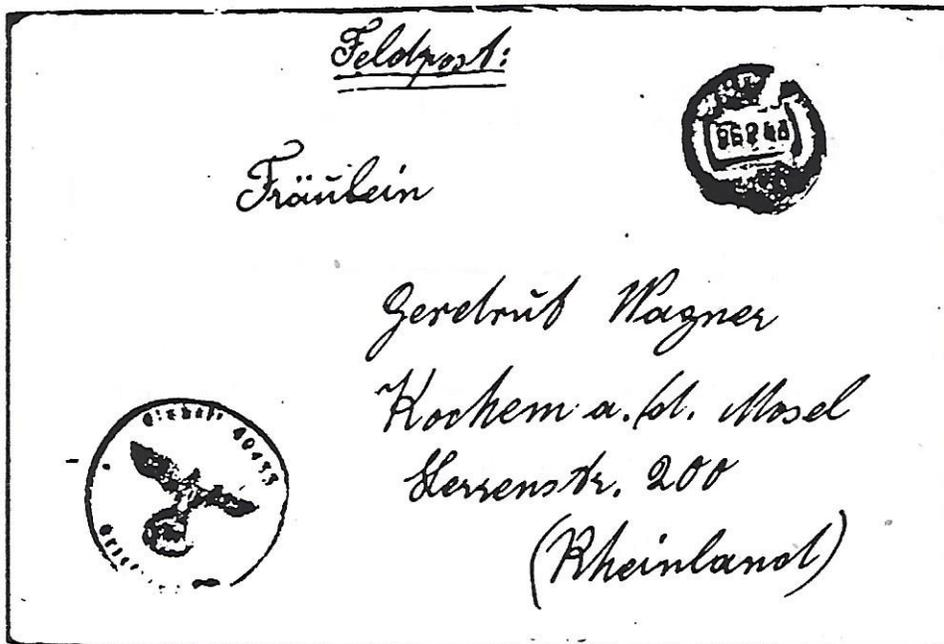 Feldpost:
Fräulein
Gerdrud Wagner
Kochem a./d. Mosel
Herrenstr. 200
(Rheinland)
40433